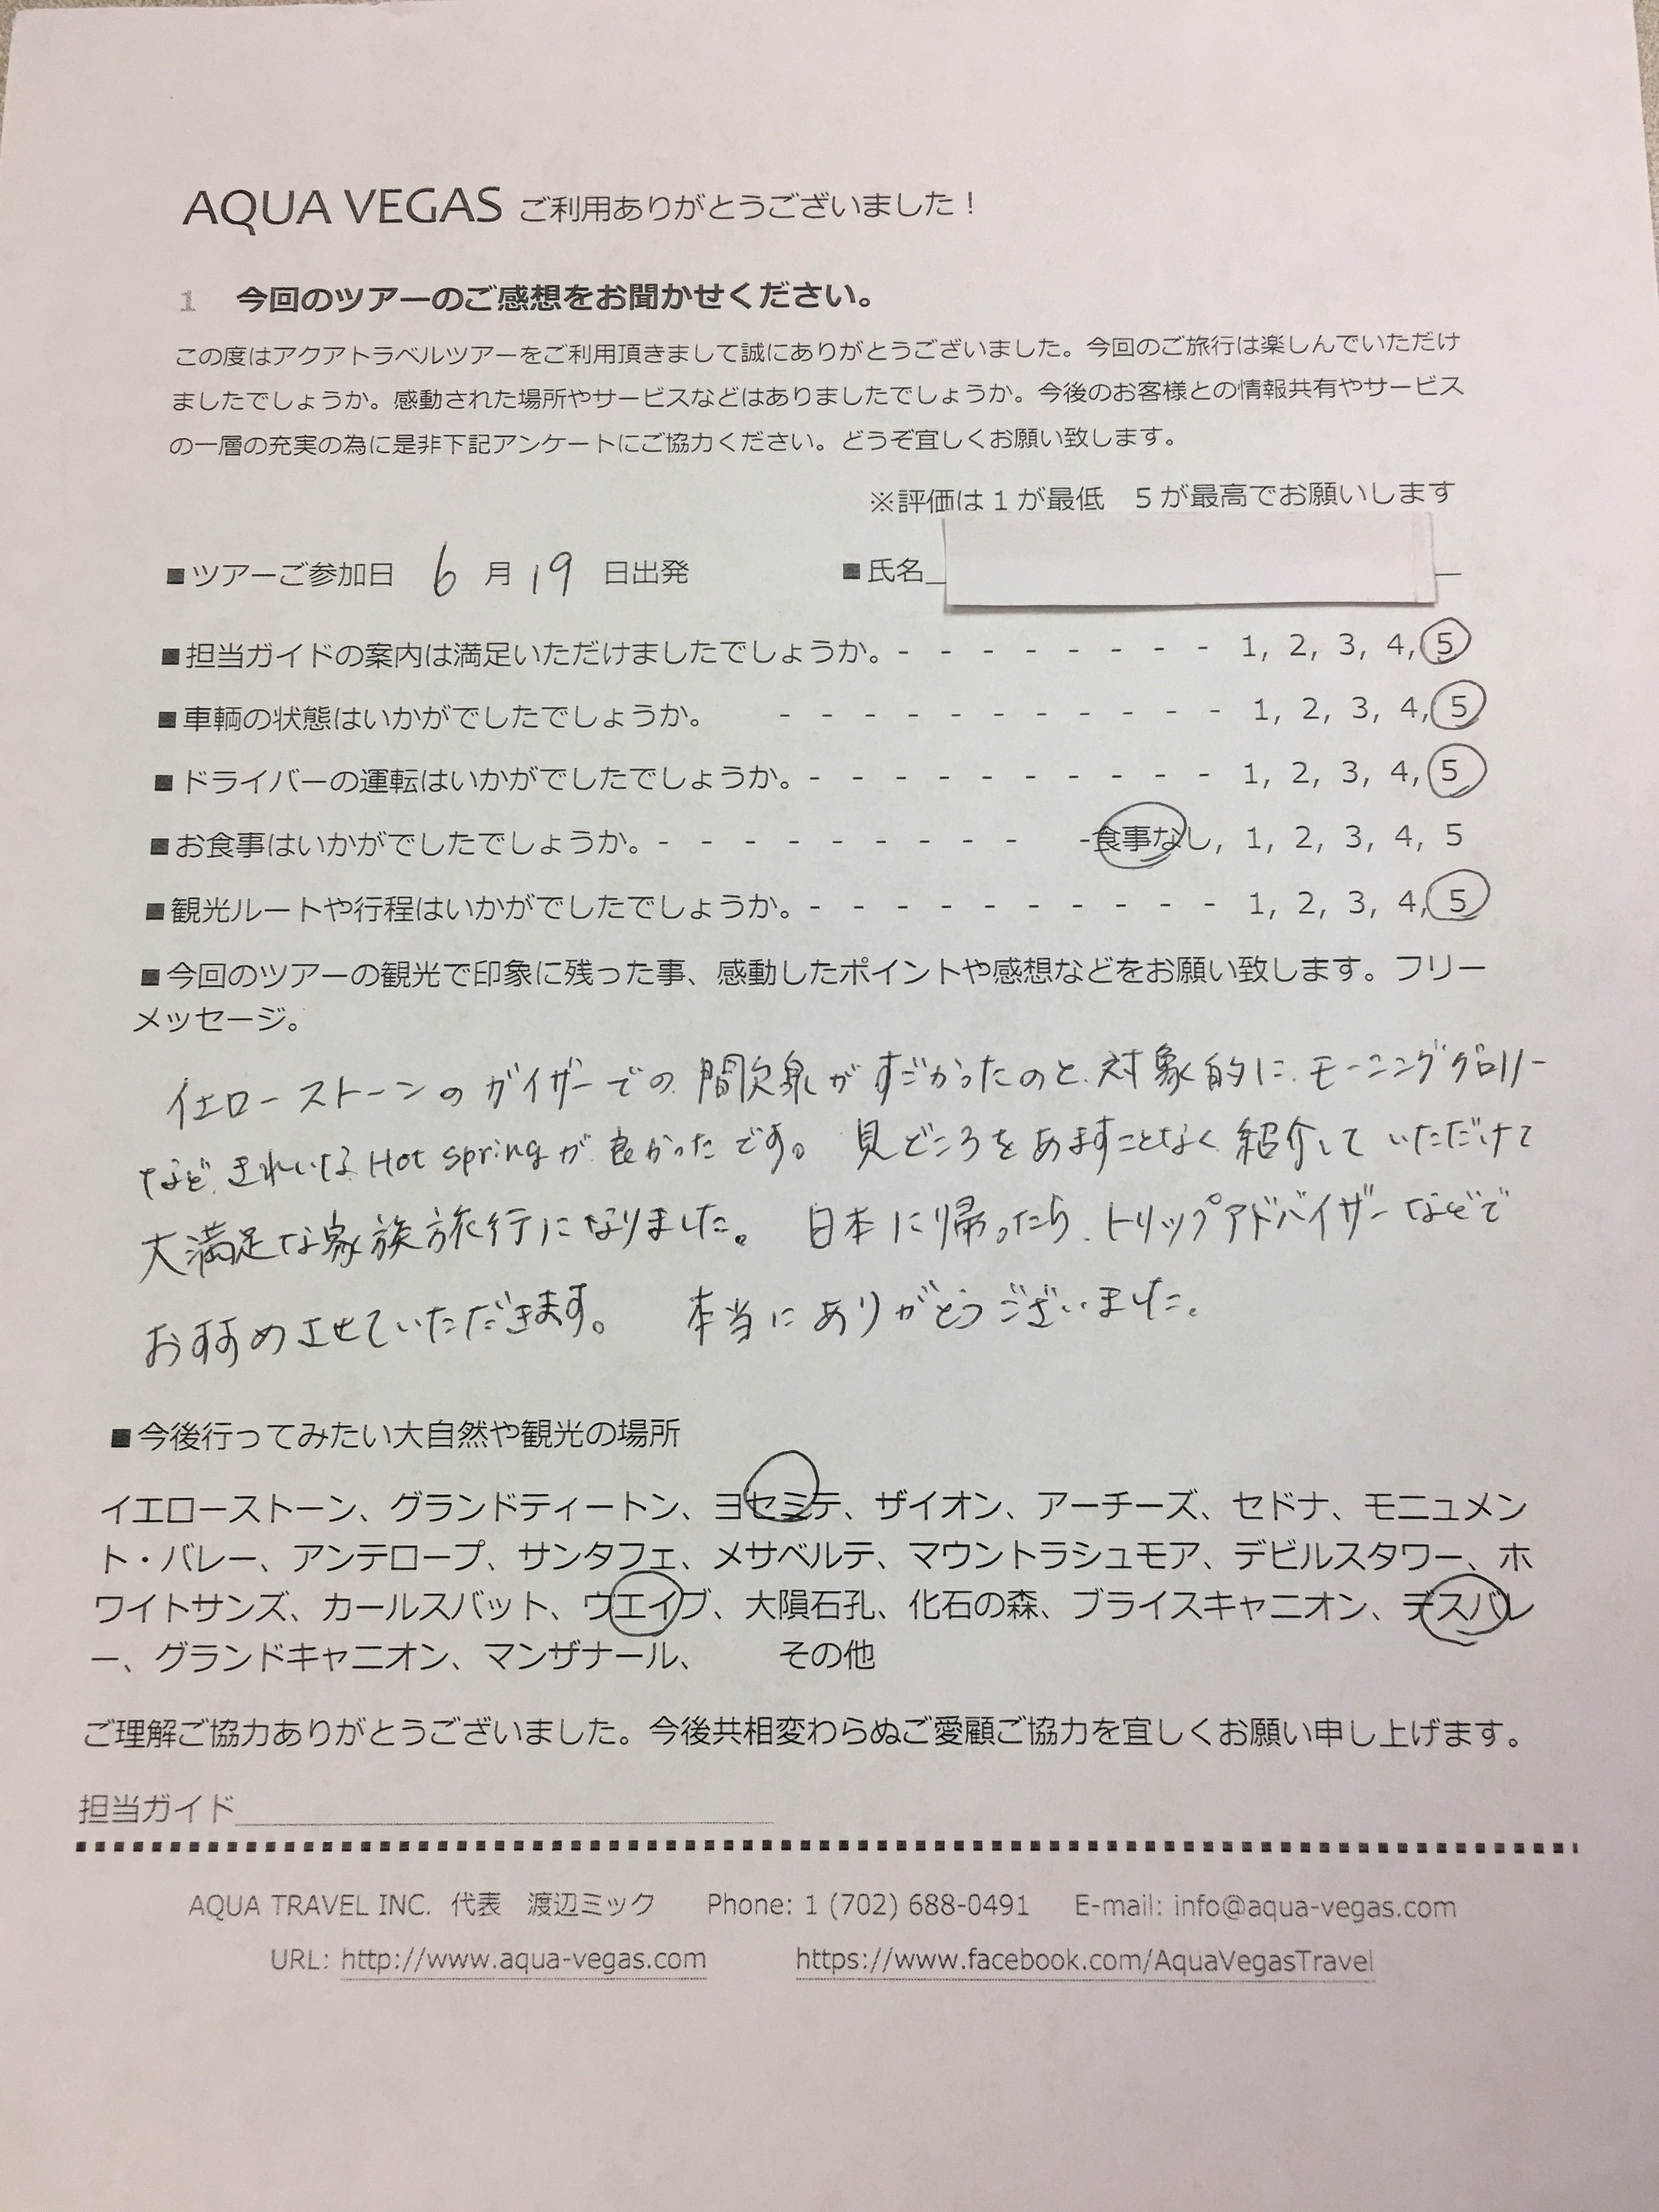 AQUA VEGAS ご利用ありがとうございました！
1 今回のツアーのご感想をお聞かせください。
この度はアクアトラベルツアーをご利用頂きまして誠にありがとうございました。今回のご旅行は楽しんでいただけ
ましたでしょうか。感動された場所やサービスなどはありましたでしょうか。今後のお客様との情報共有やサービス
の一層の充実の為に是非下記アンケートにご協力ください。どうぞ宜しくお願い致します。
※評価は1が最低 5が最高でお願いします
■ツアーご参加日 6 月 19 日出発 ■氏名
■担当ガイドの案内は満足いただけましたでしょうか。- - - - - - - - 1, 2, 3, 4, 5
■車輌の状態はいかがでしたでしょうか。 - - - - - - - - - - - 1, 2, 3, 4, 5
■ドライバーの運転はいかがでしたでしょうか。- - - - - - - - - - 1, 2, 3, 4, 5
■お食事はいかがでしたでしょうか。- - - - - - - - - -食事なし, 1, 2, 3, 4, 5
■観光ルートや行程はいかがでしたでしょうか。- - - - - - - - - - 1, 2, 3, 4, 5
■今回のツアーの観光で印象に残った事、感動したポイントや感想などをお願い致します。フリー
メッセージ。
イエローストーンのガイザーでの間欠泉がすごかったのと、対象的に、モーニンググロリー
など、きれいな Hot springが良かったです。 見どころをあますことなく紹介していただけて
大満足な家族旅行になりました。 日本に帰ったら、トリップアドバイザーなどで
おすすめさせていただきます。 本当にありがとうございました。
■今後行ってみたい大自然や観光の場所
イエローストーン、グランドティートン、ヨセミテ、ザイオン、アーチーズ、セドナ、モニュメン
ト・バレー、アンテロープ、サンタフェ、メサベルテ、マウントラシュモア、デビルスタワー、ホ
ワイトサンズ、カールスバット、ウエイブ、大隕石孔、化石の森、ブライスキャニオン、デスバレ
ー、グランドキャニオン、マンザナール、 その他
ご理解ご協力ありがとうございました。今後共相変わらぬご愛顧ご協力を宜しくお願い申し上げます。
担当ガイド
AQUA TRAVEL INC. 代表 渡辺ミック Phone: 1 (702) 688-0491 E-mail: info@aqua-vegas.com
URL: http://www.aqua-vegas.com https://www.facebook.com/AquaVegasTravel